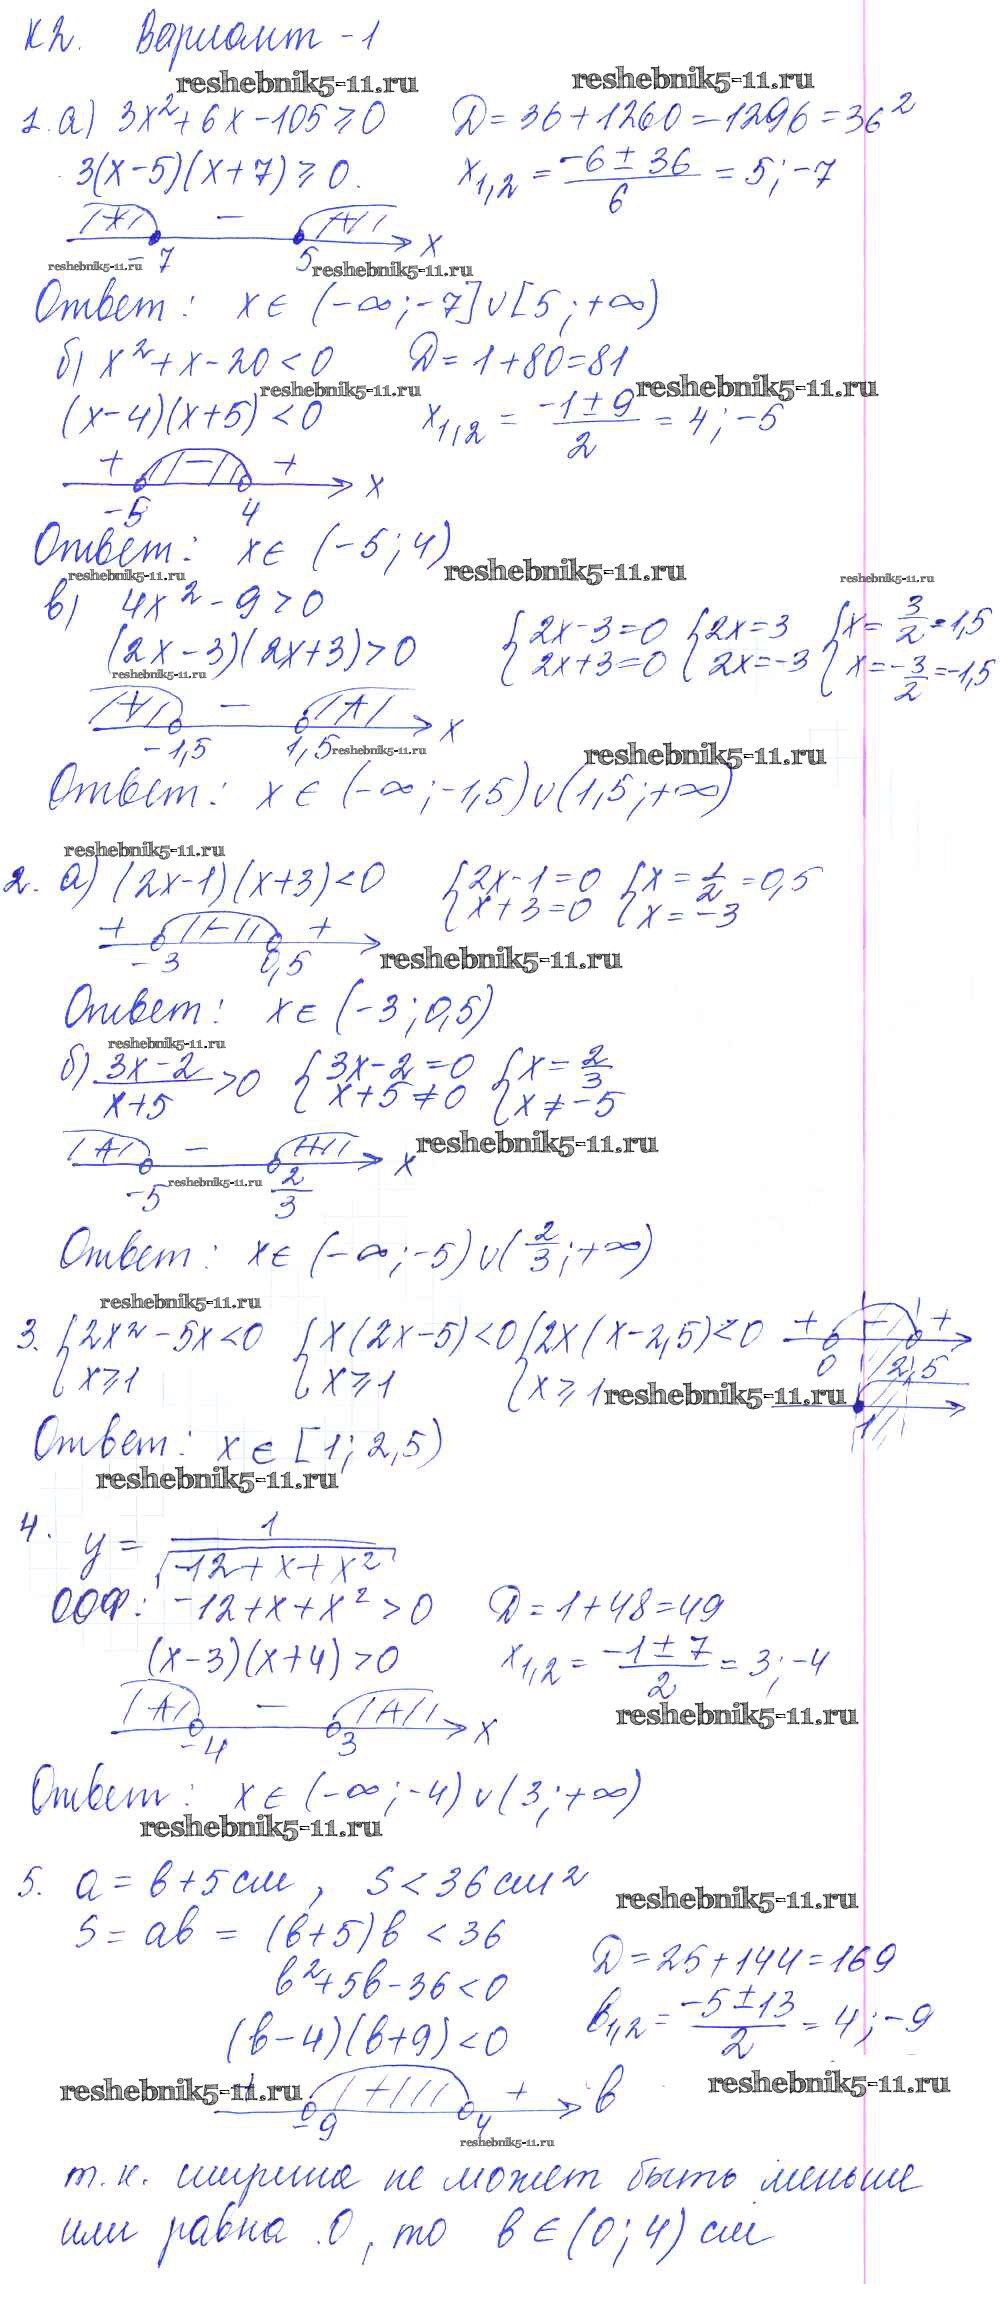 К2. Вариант-1
reshebnik5-11.ru reshebnik5-11.ru
1. а) 3x²+6x-105≥0 D=36+1260=1296=36²
3(x-5)(x+7)≥0. x₁,₂ = (-6±36)/6 = 5; -7
+ - + x
-7 5
reshebnik5-11.ru reshebnik5-11.ru
Ответ: x∈(-∞;-7]∪[5;+∞)
б) x²+x-20<0 D=1+80=81
reshebnik5-11.ru reshebnik5-11.ru
(x-4)(x+5)<0 x₁,₂ = (-1±9)/2 = 4; -5
+ - + x
-5 4
Ответ: x∈(-5;4)
reshebnik5-11.ru reshebnik5-11.ru reshebnik5-11.ru
в) 4x²-9>0
(2x-3)(2x+3)>0 {2x-3=0 2x+3=0 {2x=3 2x=-3 {x=3/2=1,5 x=-3/2=-1,5
reshebnik5-11.ru
+ - + x
-1,5 1,5
reshebnik5-11.ru reshebnik5-11.ru
Ответ: x∈(-∞;-1,5)∪(1,5;+∞)
reshebnik5-11.ru
2. а) (2x-1)(x+3)<0 {2x-1=0 x+3=0 {x=1/2=0,5 x=-3
+ - +
-3 0,5
reshebnik5-11.ru
Ответ: x∈(-3;0,5)
reshebnik5-11.ru
б) (3x-2)/(x+5)>0 {3x-2=0 x+5≠0 {x=2/3 x≠-5
+ - + x
reshebnik5-11.ru
-5 2/3
reshebnik5-11.ru
Ответ: x∈(-∞;-5)∪(2/3;+∞)
reshebnik5-11.ru
3. {2x²-5x<0 x≥1 {x(2x-5)<0 x≥1 {2x(x-2,5)<0 x≥1
+ - +
0 2,5
1
reshebnik5-11.ru
Ответ: x∈[1;2,5)
reshebnik5-11.ru
4. y = 1/√(-12+x+x²)
ООФ: -12+x+x²>0 D=1+48=49
(x-3)(x+4)>0 x₁,₂ = (-1±7)/2 = 3; -4
+ - + x
-4 3
reshebnik5-11.ru
Ответ: x∈(-∞;-4)∪(3;+∞)
reshebnik5-11.ru
5. a=b+5см, S<36см²
reshebnik5-11.ru
S=ab=(b+5)b<36
b²+5b-36<0 D=25+144=169
(b-4)(b+9)<0 b₁,₂ = (-5±13)/2 = 4; -9
reshebnik5-11.ru reshebnik5-11.ru
+ + + b
-9 4
reshebnik5-11.ru
т.к. ширина не может быть меньше
или равна 0, то b∈(0;4) см